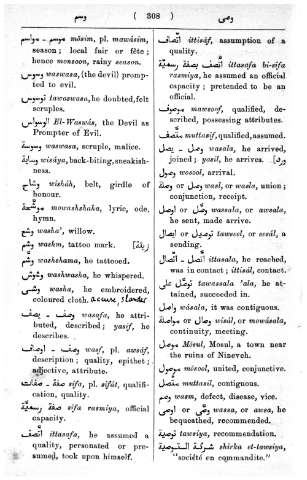 وسم ( 308 ) وصى
موسم - مواسم mósim, pl. mawásim,
season; local fair or fête;
hence monsoon, rainy season.
وسوس waswasa, (the devil) prompt-
ed to evil.
توسوس tawaswasa, he doubted, felt
scruples.
الوسواس El-Waswás, the Devil as
Prompter of Evil.
وسوسة waswasa, scruple, malice.
وساية wisáya, back-biting, sneakish-
ness.
وشاح wisháh, belt, girdle of
honour.
موشحة mowashshaha, lyric, ode,
hymn.
وشع washa', willow.
وشم washm, tattoo mark.
وشم washshama, he tattooed.
وشوش washwasha, he whispered.
وشى washa, he embroidered,
coloured cloth.
وصف - يصف wasafa, he attri-
buted, described; yasif, he
describes.
وصف - اوصاف wasf, pl. awsáf,
description; quality, epithet;
adjective, attribute.
صفة - صفات sifa, pl. sifát, qualifi-
cation, quality.
صفة رسمية sifa rasmiya, official
capacity.
اتّصف ittasafa, he assumed a
quality, personated or pre-
sumed, took upon himself.
اتّصاف ittisáf, assumption of a
quality.
اتّصف بصفة رسميّة ittasafa bi-sifa
rasmiya, he assumed an official
capacity; pretended to be an
official.
موصوف mawsoof, qualified, de-
scribed, possessing attributes.
متّصف muttasif, qualified, assumed.
وصل - يصل wasala, he arrived,
joined; yasil, he arrives.
وصول wosool, arrival.
وصل or وصلة wasl, or wasla, union;
conjunction, receipt.
وصّل or اوصل wassala, or awsala,
he sent, made arrive.
توصيل or ايصال tawseel, or eesál, a
sending.
اتّصل - اتّصال ittasala, he reached,
was in contact; ittisál, contact.
توصّل على tawassala 'ala, he at-
tained, succeeded in.
واصل wásala, it was contiguous.
وصال or مواصلة wisál, or mowásala,
continuity, meeting.
موصل Mósul, Mosul, a town near
the ruins of Nineveh.
موصول mósool, united, conjunctive.
متّصل muttasil, contiguous.
وصم wasm, defect, disease, vice.
وصّى or اوصى wassa, or awsa, he
bequeathed, recommended.
توصية tawsiya, recommendation.
شركة التوصية shirka et-tawsiya,
"société en commandite."